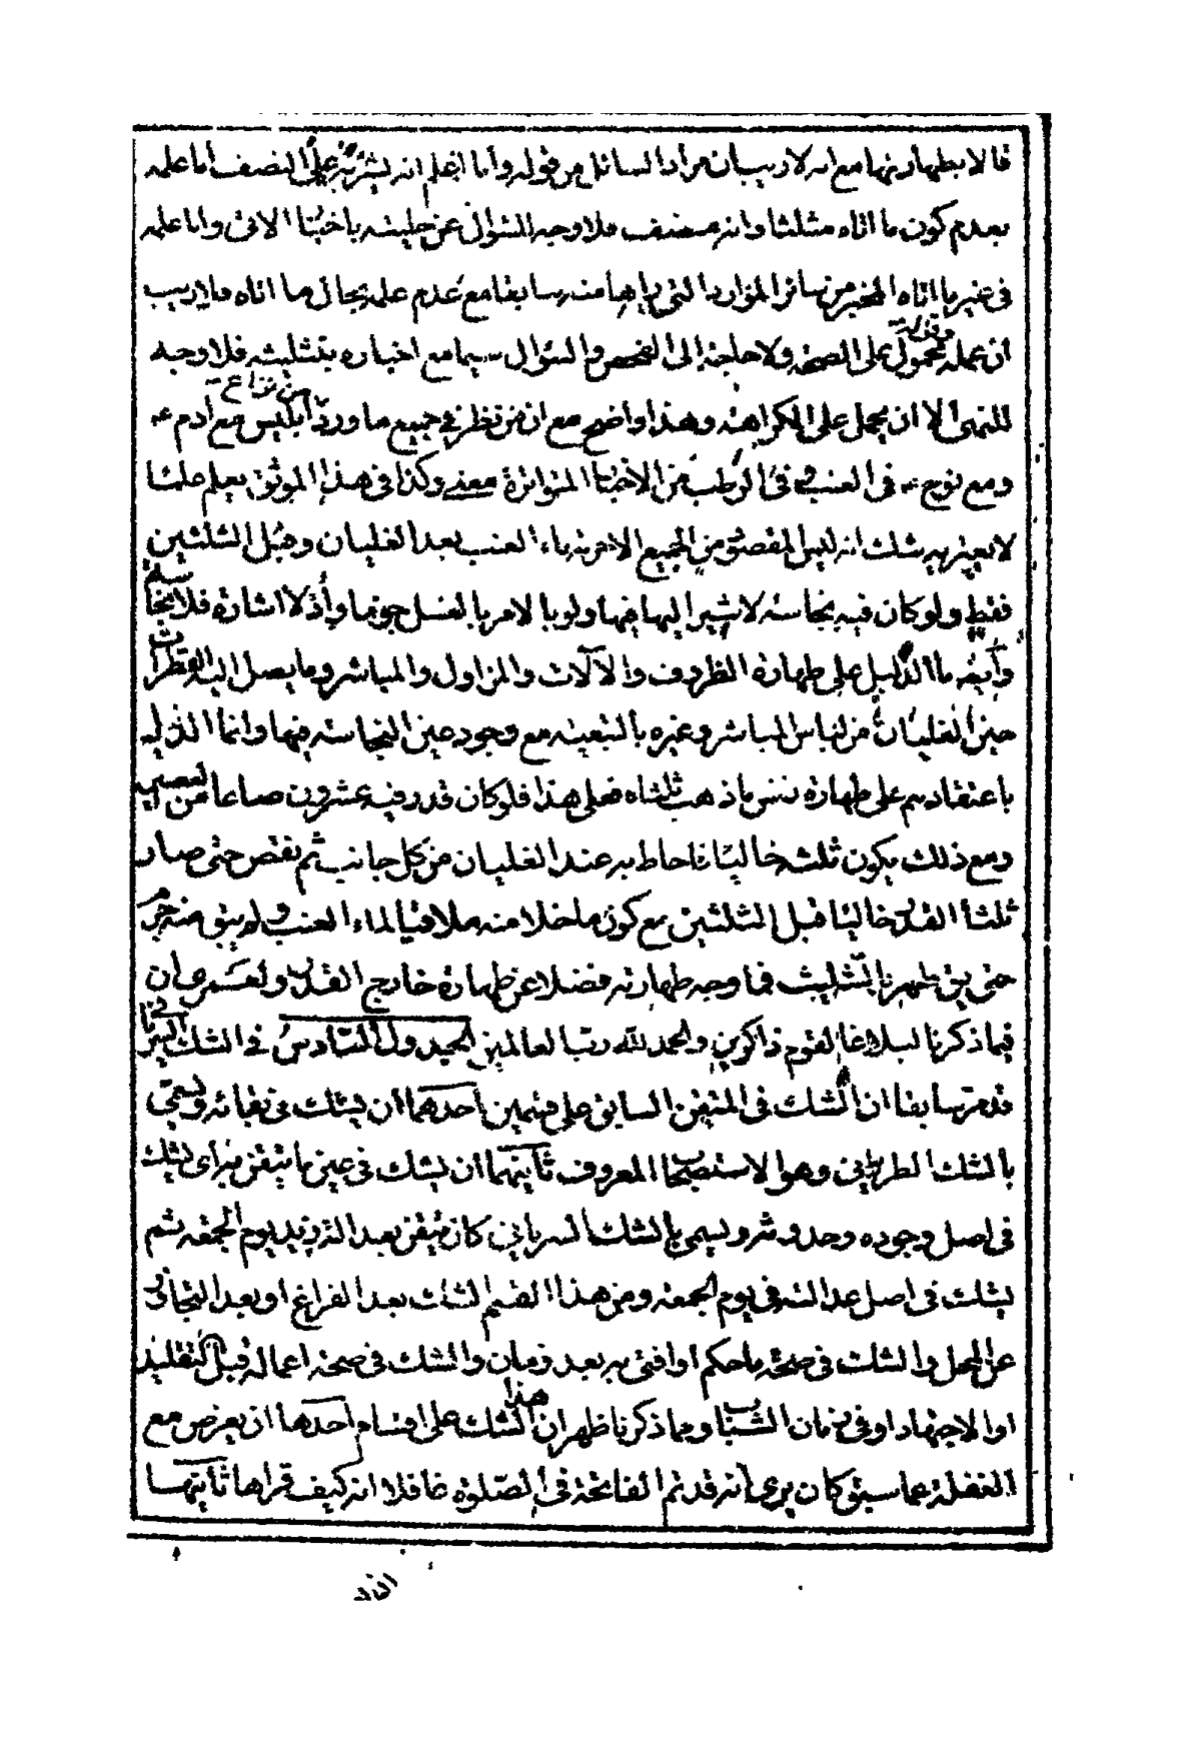 قالا بطهارتها مع انه لا ريب بان مراد السائل من قوله وأنا اعلم انه يشربه على النصف اما علمه
بعدم كون ما اتاه مثلثا وانه منصف فلا وجه للسؤال عن حليته باخبتا الاتى واما علمه
فى غير ما اتاه المخبر من سائر الموارد التى يراها منه سابقا مع عدم علمه بحال ما اتاه فلا ريب
ان عمله محمول على الصحة ولا حاجة إلى الفحص والسؤال سيما مع اخباره بتثليثه فلا وجه
للنهى الا ان يحمل على الكراهة وهذا واضح مع ان من نظر في جميع ما ورد من نزاع ابليس مع ادم ع
ومع نوح ع فى العنب و فى الرطب من الأخبتا المتواترة معنى وكذا فى هذا الموثق يعلم علما
لا يعتريه شك انه ليس المقصو من الجميع الا حرمة ماء العنب بعد الغليان وقبل الثلثين
فقط ولو كان فيه نجاسة لاشير اليها فيها ولو بالامر بالغسل جزما وإذ لا اشارة فلا نجاسة
وأيضه ما الدليل على طهارة الظروف والآلات والمزاول والمباشر وما يصل اليه القطرات
حين الغليان من لباس المباشر وغيره بالتبعية مع وجود عين النجاسة فيها وانما الدليل
باعتقادهم على طهارة نفس ما ذهب ثلثاه فعلى هذا فلو كان قدر فيه عشرون صاعا من العصير
ومع ذلك يكون ثلثه خاليا فاحاط به عند الغليان من كل جانب ثم نقص حتى صار
ثلثا القدر خاليا قبل الثلثين مع كون ما خلا منه ملاقيا لماء العنب و لم يبق منه جزء
حتى يق طهر بالتثليث فما وجه طهارته فضلا عن طهارة خارج القدر ولعمرى ان
فيما ذكرنا لبلاغا لقوم ذاكرين والحمد لله رب العالمين الجدول السادس فى الشك السريانى
قد مر سابقا ان الشك فى المتيقن السابق على قسمين احدهما ان يشك فى بقائه ويسمى
بالشك الطريانى وهو الاستصحا المعروف ثانيهما ان يشك فى عين ما تيقن به اى يشك
فى اصل وجوده وحدوثه ويسمى بالشك السريانى كان تيقن بعدالة زيد يوم الجمعة ثم
يشك فى اصل عدالته فى يوم الجمعة ومن هذا القسم الشك بعد الفراغ او بعد التجافى
عن المحل والشك فى صحة ما حكم او افتى به بعد زمان والشك فى صحة اعماله قبل التقليد
او الاجتهاد او فى زمان الشبتا ومما ذكرنا ظهر ان هذا الشك على اقسام احدها ان يعرض مع
الغفلة عما سبق كان يرى انه قد تم الفاتحة فى الصلوة غافلا انه كيف قراها ثانيها